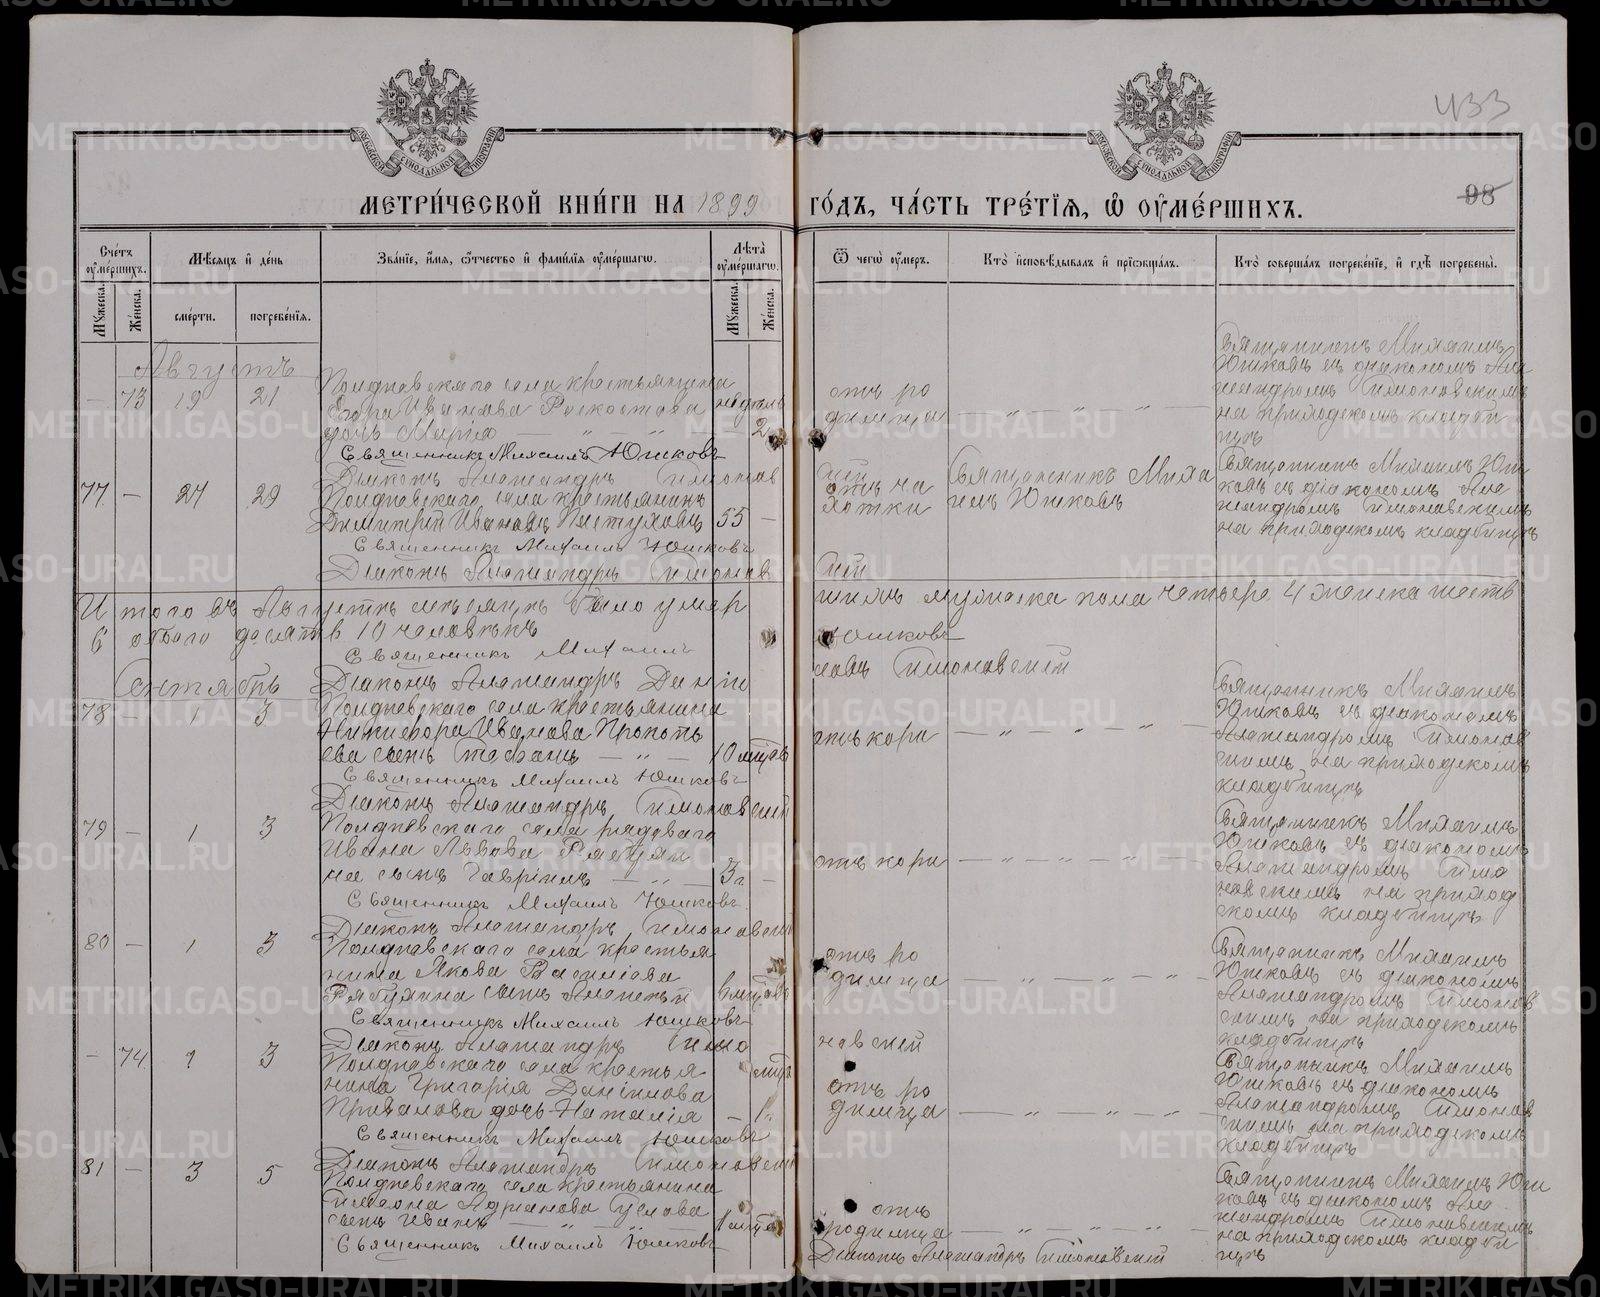 433
98
МЕТРИ́ЧЕСКОЙ КНИ́ГИ НА 1899 ГО́ДЪ, ЧА́СТЬ ТРЕ́ТЇѦ, Ѡ҆ ОУ҆МЕ́РШИХЪ.
Сче́тъ оу҆ме́ршихъ.
Мѣ́сяцъ и҆ де́нь
Зва́нїе, и҆́мѧ, ѻ҆́тчество и҆ фами́лїѧ оу҆ме́ршагѡ.
Лѣ̑та оу҆ме́ршагѡ.
Ѿ чегѡ̀ оу҆́меръ.
Кто̀ и҆сповѣ́дывалъ и҆ прїѡбща́лъ.
Кто̀ соверша́лъ погребе́нїе, и҆ гдѣ̀ погребены̀.
Мꙋ́жеска.
Же́нска.
сме́рти.
погребе́нїѧ.
Мꙋ́жеска.
Же́нска.
Августъ
— 73 19 21
Полдневскаго села крестьянина
Егора Иванова
дочь Марія — " — " — 2
недѣль
отъ ро
димца
— " — " — " —
Священникъ Михаилъ
Юшковъ съ діакономъ Але
ксандромъ Симоновскимъ
на приходскомъ кладби
щѣ
Священникъ Михаилъ Юшковъ
Діаконъ Александръ Симонов
скій
77 — 27 29
Полдневскаго села крестьянинъ
Димитрій Ивановъ Пастуховъ 55 —
отъ ча
хотки
Священникъ Миха
илъ Юшковъ
Священникъ Михаилъ Юш
ковъ съ діакономъ Але
ксандромъ Симоновскимъ
на приходскомъ кладбищѣ
Священникъ Михаилъ Юшковъ
Діаконъ Александръ Симонов
скій
Итого въ Августѣ мѣсяцѣ было умер
шихъ мужеска пола четыре 4 женска шесть
6 обоего десять 10 человѣкъ
Священникъ Михаилъ Юшковъ
Діаконъ Александръ Дани
ловъ Симоновскій
Сентябрь
78 — 1 3
Полдневскаго села крестьянина
Никифора Иванова Прокопь
ева сынъ Стефанъ — " — 10 мѣсцвъ
отъ кори
— " — " — " —
Священникъ Михаилъ
Юшковъ съ діакономъ
Александромъ Симонов
скимъ на приходскомъ
кладбищѣ
Священникъ Михаилъ Юшковъ
Діаконъ Александръ Симоновскій
79 — 1 3
Полдневскаго села рядоваго
Ивана Львова
на сынъ Гавріилъ — " — 3г —
отъ кори
— " — " — " —
Священникъ Михаилъ
Юшковъ съ діакономъ
Александромъ Симо
новскимъ на приход
скомъ кладбищѣ
Священникъ Михаилъ Юшковъ
Діаконъ Александръ Симоновскій
80 — 1 3
Полдневскаго села крестья
нина Якова Василіева
Рябухина сынъ Алексѣй 6 мѣсцвъ
отъ ро
димца
— " — " — " —
Священникъ Михаилъ
Юшковъ съ діакономъ
Александромъ Симонов
скимъ на приходскомъ
кладбищѣ
Священникъ Михаилъ Юшковъ
Діаконъ Александръ Симо
новскій
— 74 1 3
Полдневскаго села крестья
нина Григорія Даніилова
Привалова дочь Наталія — 1
отъ ро
димца
— " — " — " —
Священникъ Михаилъ
Юшковъ съ діакономъ
Александромъ Симонов
скимъ на приходскомъ
кладбищѣ
Священникъ Михаилъ Юшковъ
Діаконъ Александръ Симоновскій
81 — 3 5
Полдневскаго села крестьянина
Симеона Адріанова Гуслова
сынъ Иванъ — " — " — 1
отъ
родимца
— " — " — " —
Священникъ Михаилъ Юш
ковъ съ діакономъ Але
ксандромъ Симоновскимъ
на приходскомъ кладби
щѣ
Священникъ Михаилъ Юшковъ
Діаконъ Александръ Симоновскій
METRIKI.GASO-URAL.RU